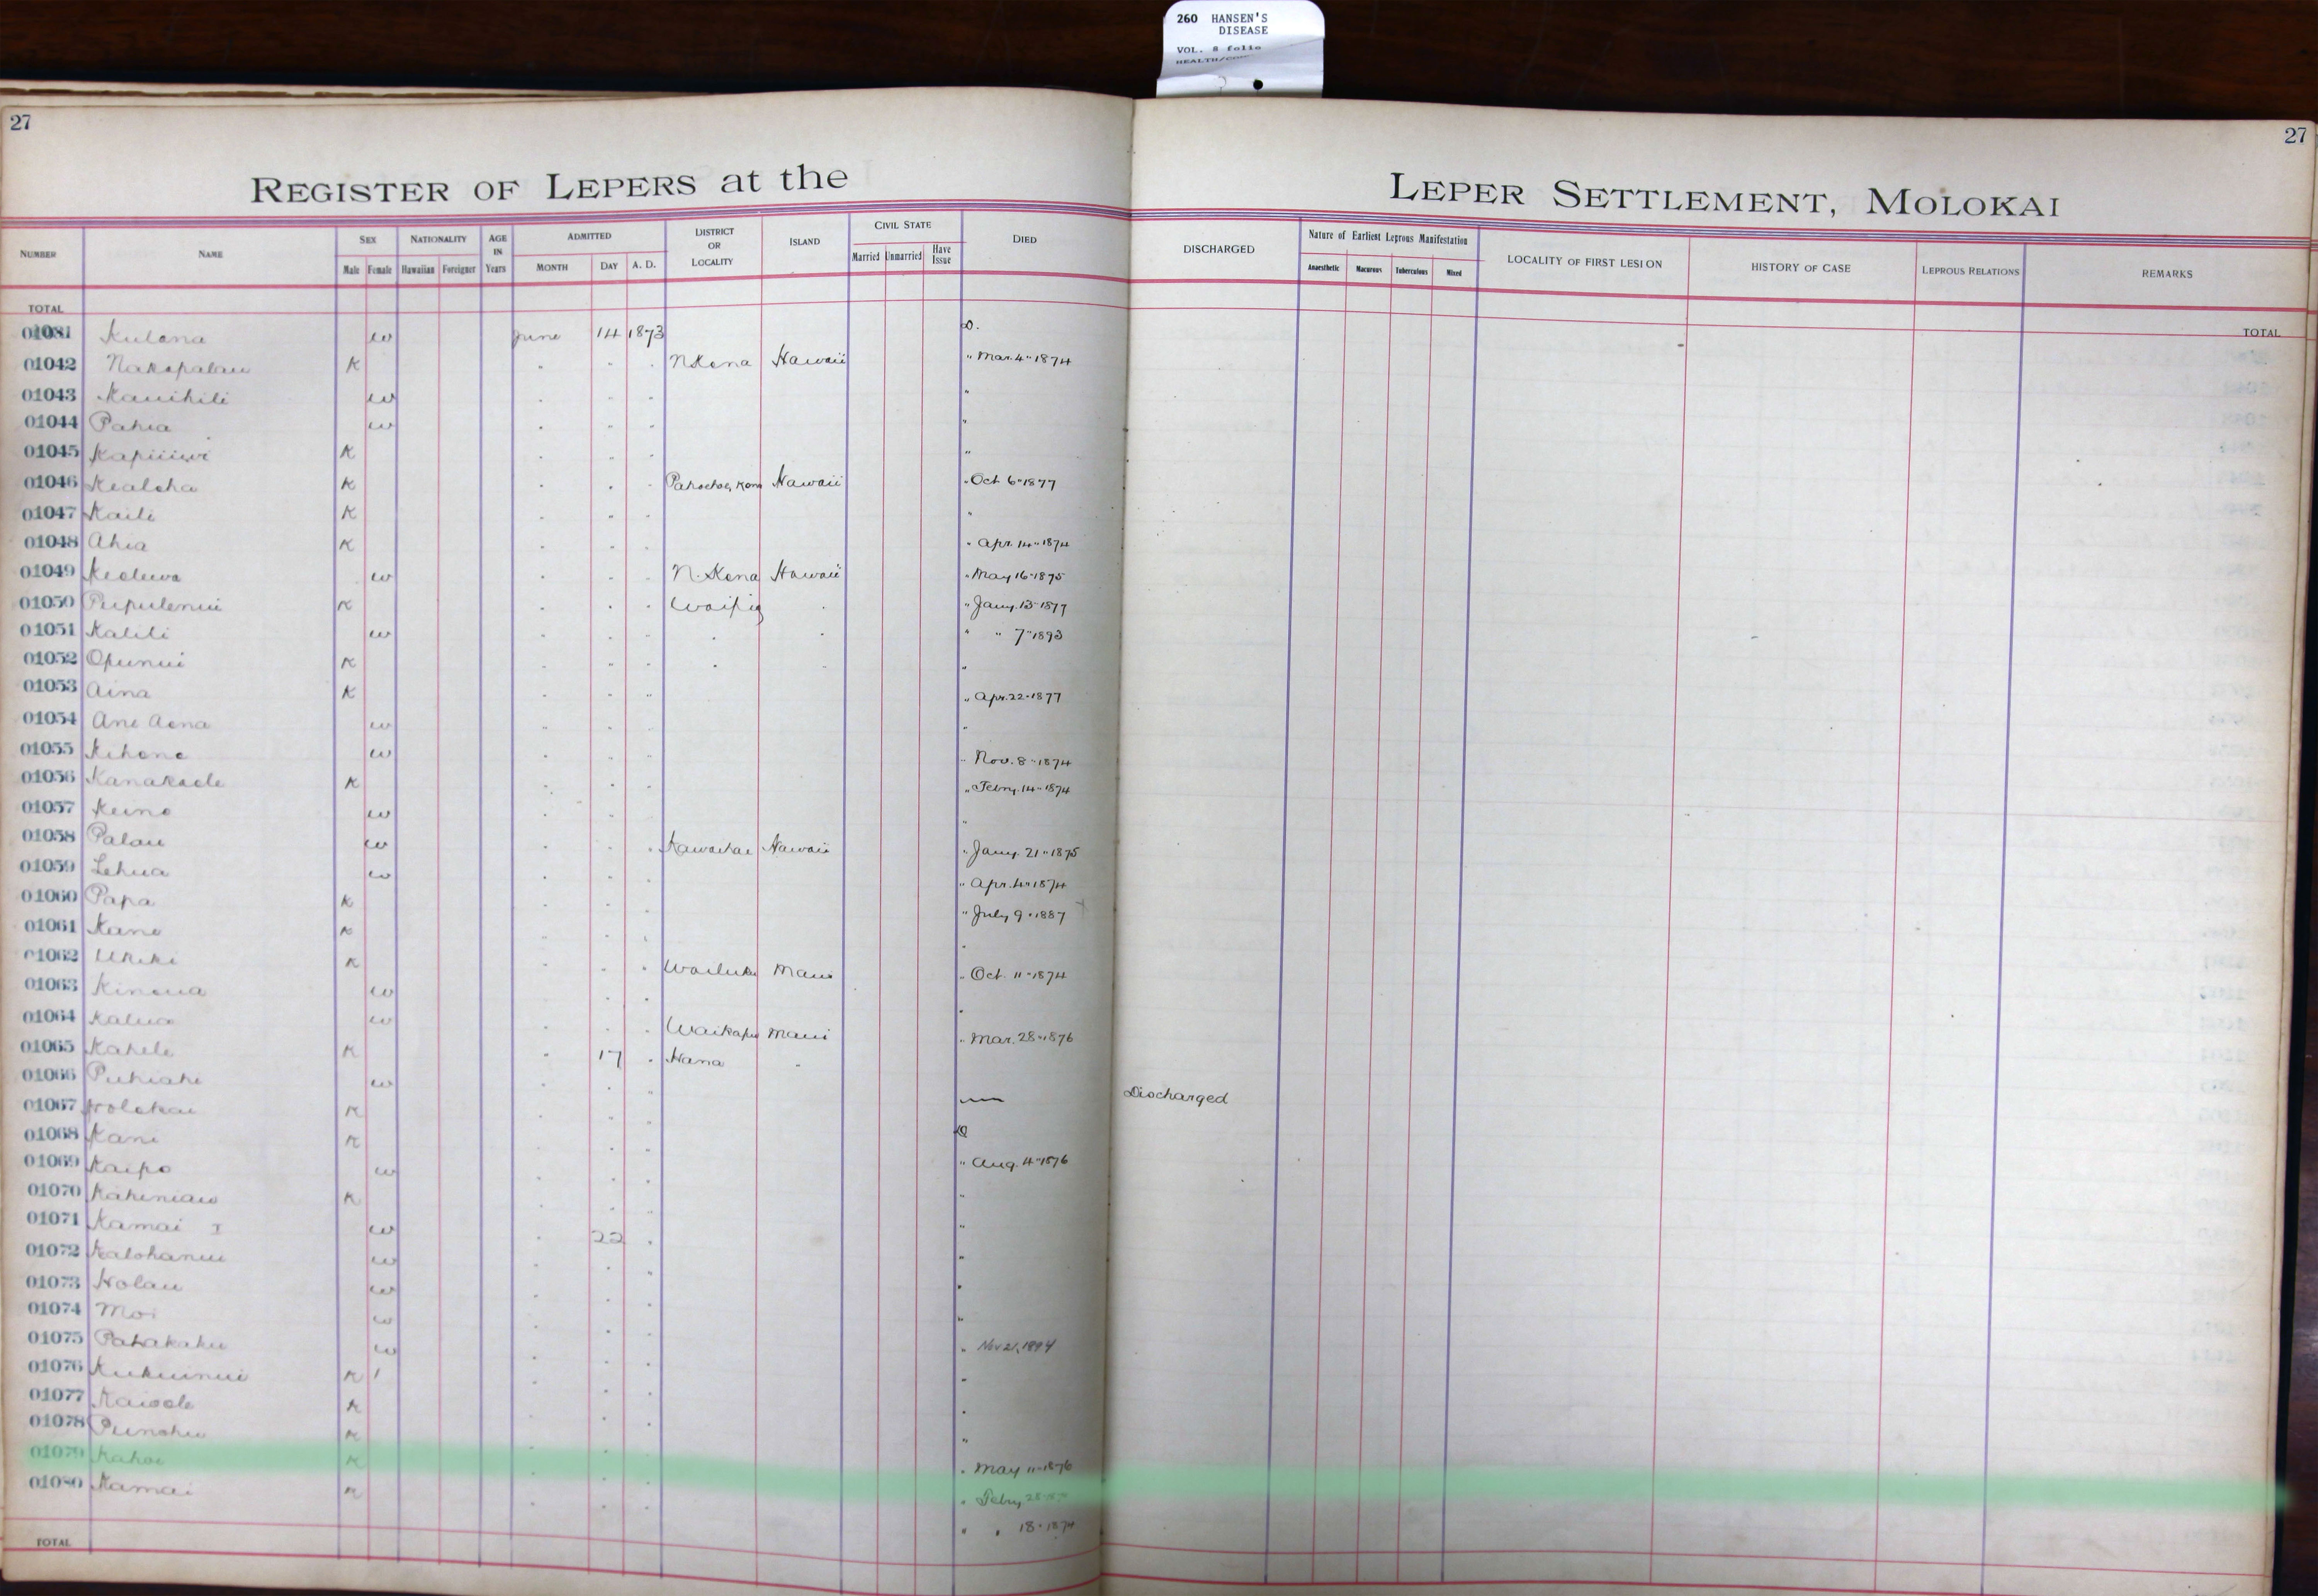 260 HANSEN'S
DISEASE
VOL. 8 folio
27
27
REGISTER OF LEPERS at the LEPER SETTLEMENT, MOLOKAI
NUMBER NAME SEX Male Female NATIONALITY Hawaiian Foreigner AGE IN Years ADMITTED MONTH DAY A. D. DISTRICT OR LOCALITY ISLAND CIVIL STATE Married Unmarried Have Issue DIED DISCHARGED Nature of Earliest Leprous Manifestation Anaesthetic Macurous Tuberculous Mixed LOCALITY OF FIRST LESION HISTORY OF CASE LEPROUS RELATIONS REMARKS
TOTAL TOTAL
Kulana w June 14 1873 D.
01042 Nakopalau K " " " N Kona Hawaii " Mar. 4" 1874
01043 Kauihili w " " " "
01044 Pahia w " " " "
01045 K " " "
01046 Kealoha K " " " Hawaii " Oct 6" 1877
01047 Kaili K " " " "
01048 Ahia K " " " " Apr. 14" 1874
01049 w " " " N. Kona Hawaii " May 16" 1875
01050 Pupulenui K " " " " Jany. 13" 1877
01051 Kalili w " " " " " " " 7" 1893
01052 Opunui K " " " " " "
01053 Aina K " " " " Apr. 22" 1877
01054 Ane Aona w " " " "
01055 Kihone w " " " " Nov. 8" 1874
01056 Kanakaole K " " " " Febry. 14" 1874
01057 Keino w " " " "
01058 Palau w " " " Kawaihae Hawaii " Jany. 21" 1875
01059 Lehua w " " " " Apr. 4" 1874
01060 Papa K " " " " July 9" 1887
01061 Kane K " " " "
01062 Ukiki K " " " Wailuku Maui " Oct. 11" 1874
01063 Kinoua w " " "
01064 Kalua w " " " Waikapu Maui " Mar. 28" 1876
01065 Kahele K " 17 " Hana "
01066 Puhiahi w " " " Discharged
01067 Holokai K " " " D
01068 Kani K " " " " Aug. 4" 1876
01069 Kaipo w " " " "
01070 Kahiniau K " " " "
01071 Kamai I w " 22 " "
01072 Kalohanui w " " " "
01073 Holau w " " " "
01074 Moi w " " "
01075 Pahakahu w " " " " Nov 21, 1894
01076 Kukuinui K " " " "
01077 Kaiole K " " " "
01078 Punohu K " " " "
01079 Kahoe K " " " " May 11" 1876
01080 Kamai K " " " " Febry 28
" " 18" 1874
TOTAL